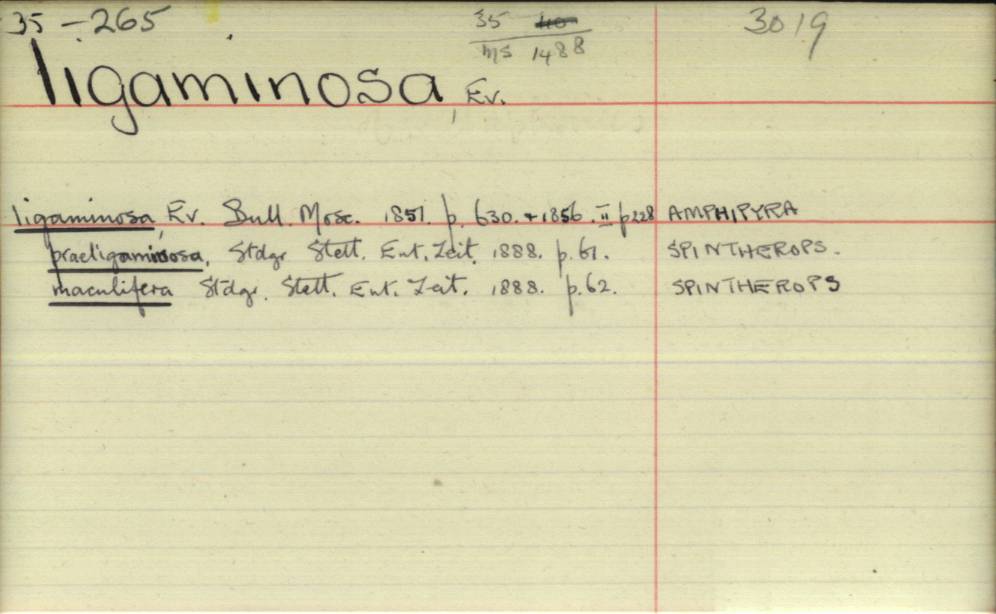 35 - 265
35 40
MS 1488
3019
ligaminosa, Ev.
ligaminosa, Ev. Bull. Mosc. 1851. p. 630. + 1856. II p228 AMPHIPYRA
praeligaminosa, Stdgr Stett. Ent. Zeit. 1888. p.61. SPINTHEROPS.
maculifera Stdgr. Stett. Ent. Zeit. 1888. p.62. SPINTHEROPS